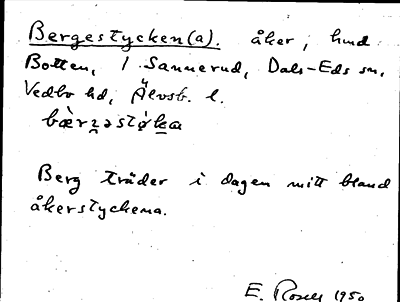 Bergestycken(a). åker, hmd
Botten, 1 Sannerud, Dals-Eds sn,
Vedbo hd, Älvsb. l.
bæ̀rz̤əstø̀k̤a
Berg träder i dagen mitt bland
åkerstyckena.
E. Rosell 1950